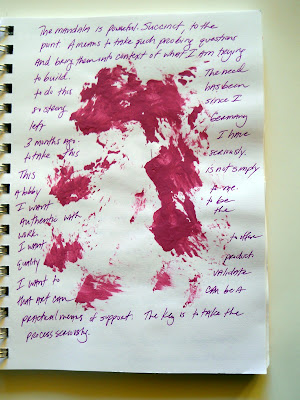 The mandala is powerful. Succinct, to the
point. A means to take such probing questions
And bring them into context of what I am trying
to build. The need
to do this has been
so strong since I
left Germany
3 months ago. I have
to take this seriously.
This is not simply
A hobby for me.
I want to be
Authentic with the
work.
I want to offer
quality product
I want to validate
that Art can be A
practical means of support. The key is to take the
process seriously.